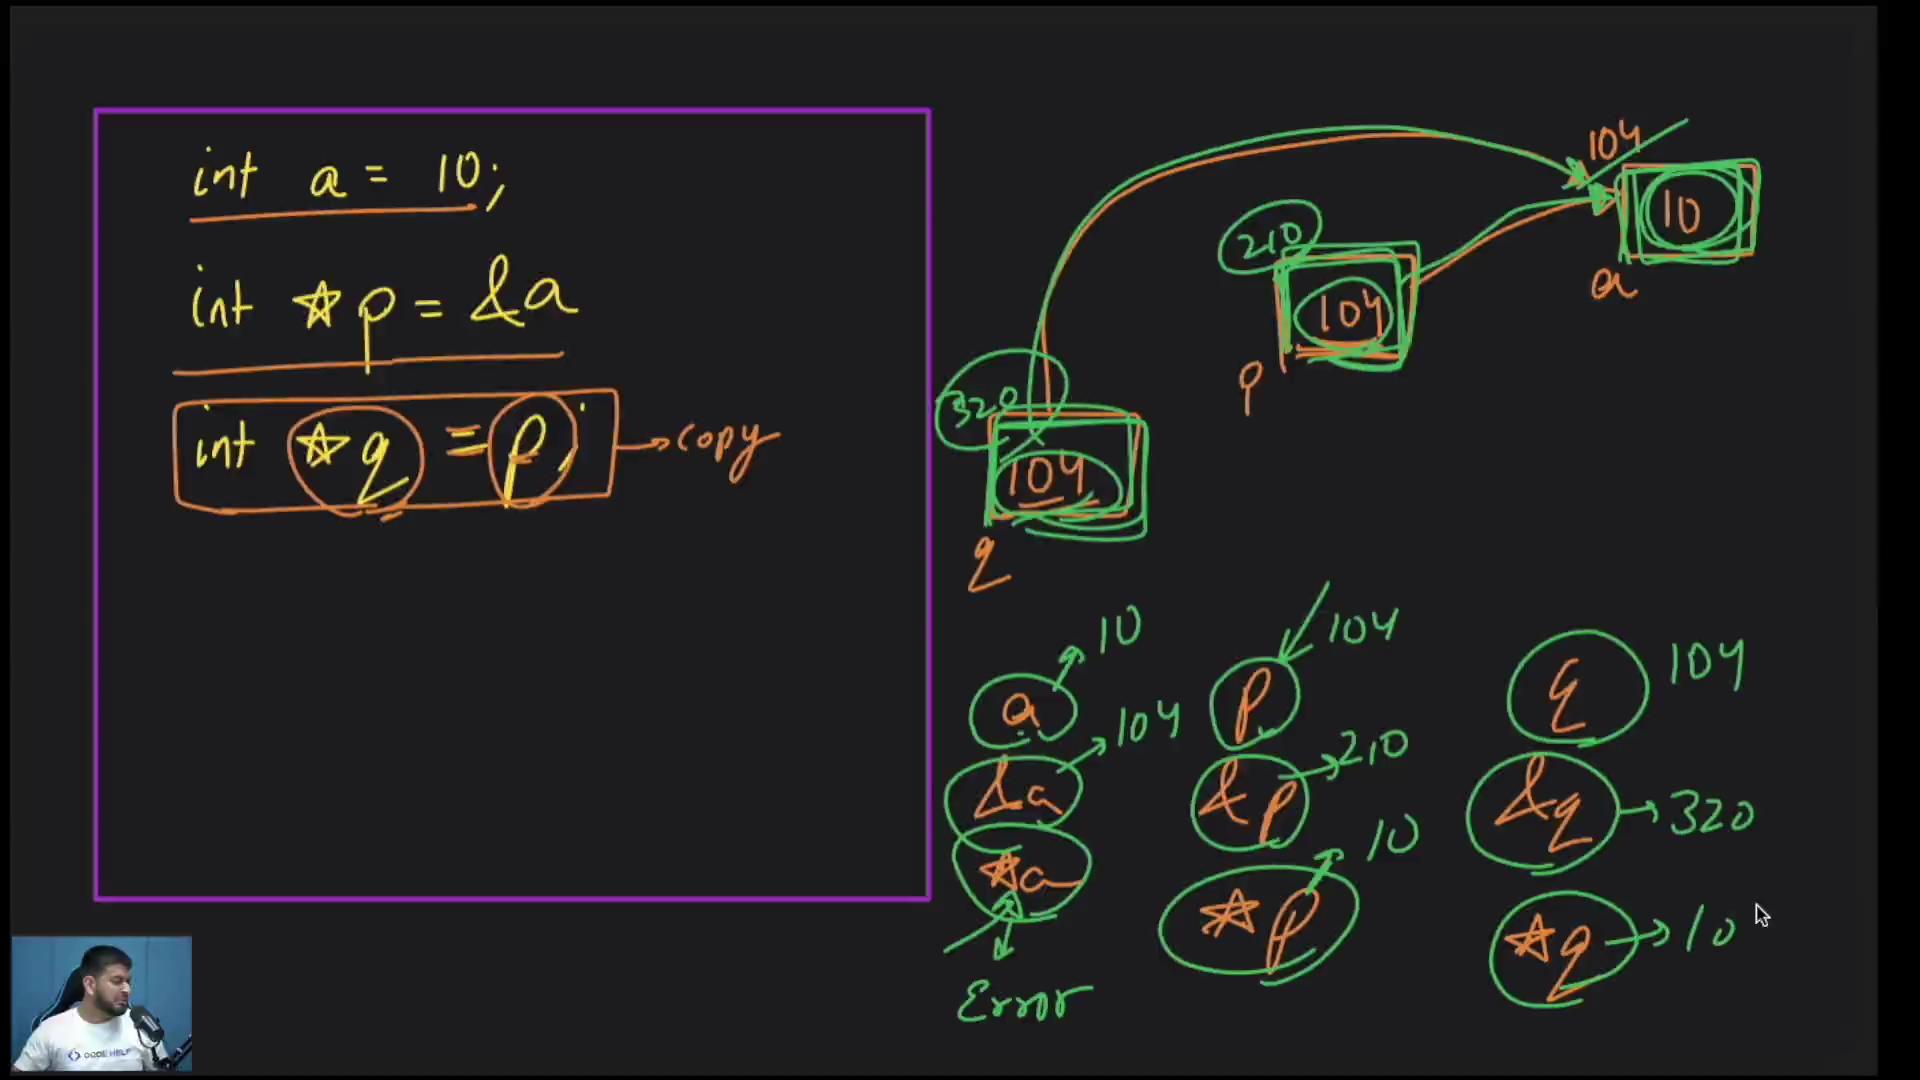 int a = 10;
int *p = &a
int *q = p;
→ copy
104
10
a
210
104
p
320
104
q
a → 10
&a → 104
*a
Error
p 104
&p → 210
*p → 10
q 104
&q → 320
*q → 10
CODE HELP